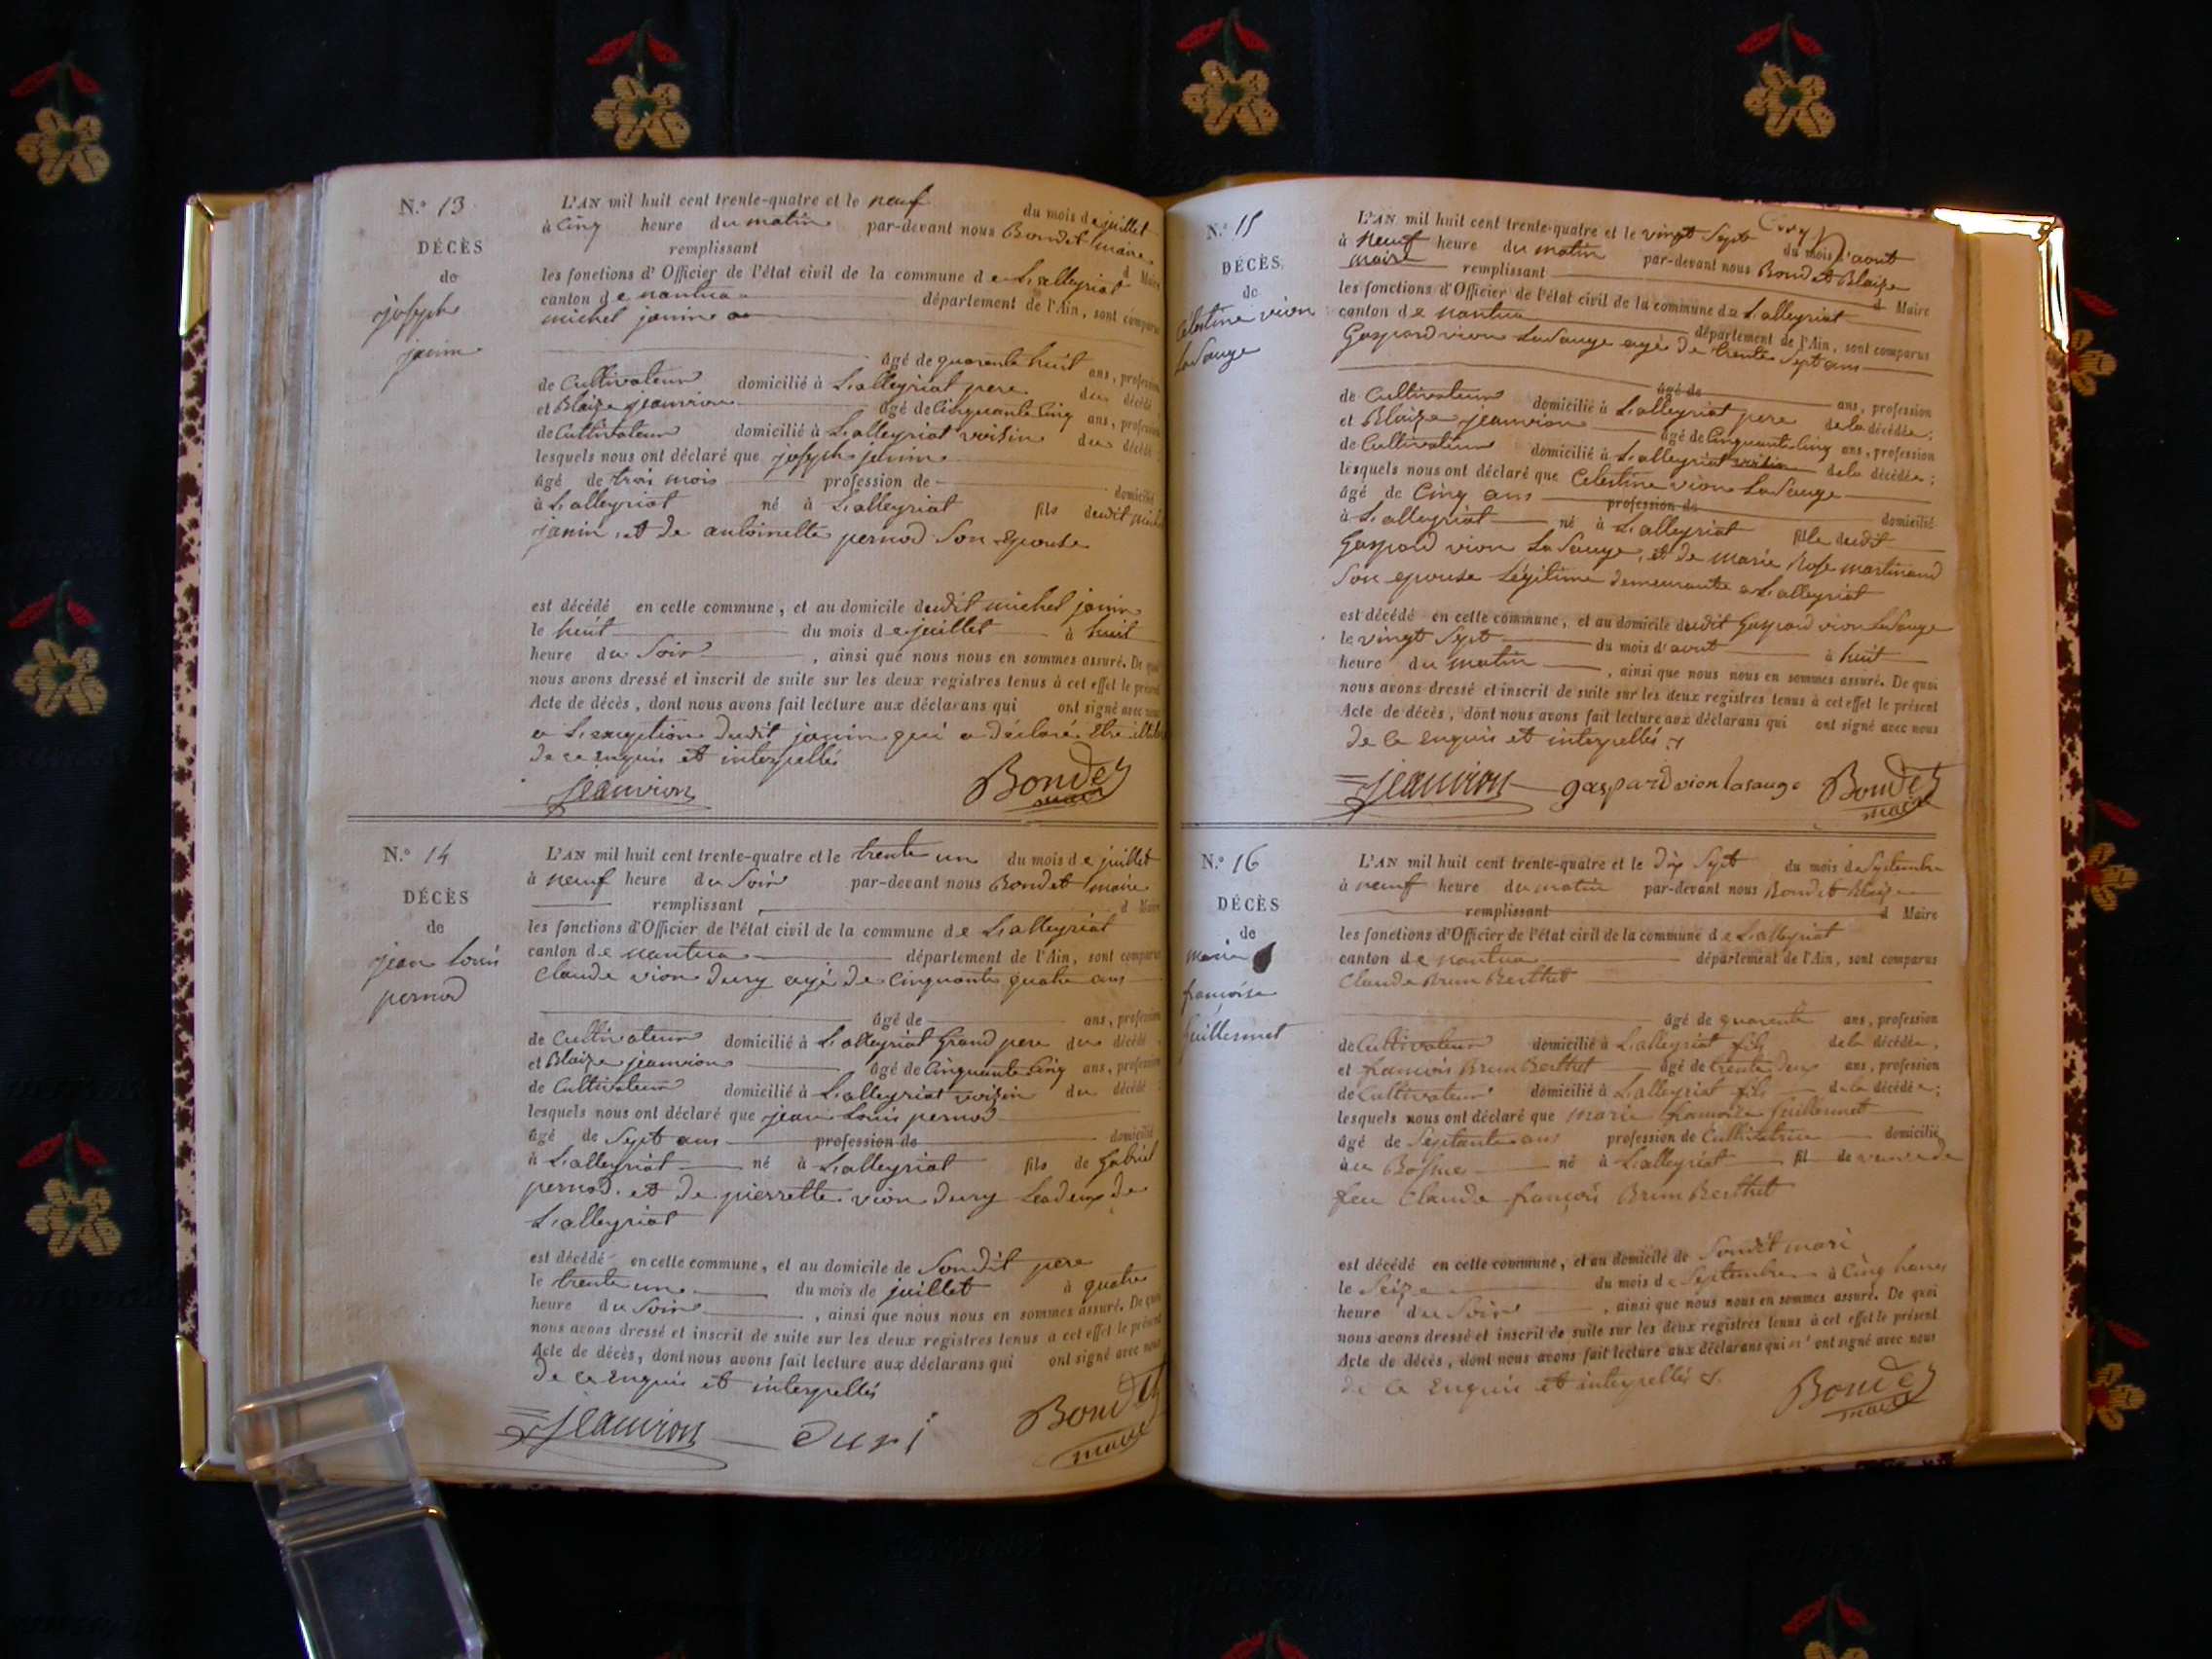 N.° 13
DÉCÈS
de
joseph
janin
L'AN mil huit cent trente-quatre et le neuf du mois de juillet
à Cinq heure du matin par-devant nous Bondet maire
remplissant d Maire
les fonctions d'Officier de l'état civil de la commune de Lalleyriat
canton de nantua département de l'Ain, sont comparus
michel janin
âgé de quarente huit ans, profession
de Cultivateur domicilié à Lalleyriat pere du décédé
et Blaize jeanvion âgé de Cinquante Cinq ans, profession
de Cultivateur domicilié à Lalleyriat voisin du décédé
lesquels nous ont déclaré que joseph janin
âgé de trois mois profession de domicilié
à Lalleyriat né à Lalleyriat fils dudit michel
janin, et de antoinette pernod Son epouse
est décédé en cette commune, et au domicile dudit michel janin
le huit du mois de juillet à huit
heure du Soir, ainsi que nous nous en sommes assuré. De quoi
nous avons dressé et inscrit de suite sur les deux registres tenus à cet effet le présent
Acte de décès, dont nous avons fait lecture aux déclarans qui ont signé avec nous
a L'exception dudit janin qui a déclaré être illitéré
de ce enquis et interpellés
Jeanvion Bondet
maire
N.° 14
DÉCÈS
de
jean Louis
pernod
L'AN mil huit cent trente-quatre et le trente un du mois de juillet
à neuf heure du Soir par-devant nous Bondet maire
remplissant d Maire
les fonctions d'Officier de l'état civil de la commune de Lalleyriat
canton de nantua département de l'Ain, sont comparus
Claude vion dury agé de Cinquante quatre ans
âgé de ans, profession
de Cultivateur domicilié à Lalleyriat Grand pere du décédé
et Blaize jeanvion âgé de Cinquante Cinq ans, profession
de Cultivateur domicilié à Lalleyriat voisin du décédé
lesquels nous ont déclaré que jean Louis pernod
âgé de Sept ans profession de domicilié
à Lalleyriat né à Lalleyriat fils de Gabriel
pernod, et de pierrette vion dury Les deux de
Lalleyriat
est décédé en cette commune, et au domicile de Sondit pere
le trente un du mois de juillet à quatre
heure du Soir, ainsi que nous nous en sommes assuré. De quoi
nous avons dressé et inscrit de suite sur les deux registres tenus a cet effet le présent
Acte de décès, dont nous avons fait lecture aux déclarans qui ont signé avec nous
de ce enquis et interpellés
Jeanvion duri Bondet
maire
N.° 15
DÉCÈS
de
Celestine vion
LaSauge
L'AN mil huit cent trente-quatre et le vingt Sept du mois d'aout
à neuf heure du matin par-devant nous Bondet Blaize
maire remplissant d Maire
les fonctions d'Officier de l'état civil de la commune de Lalleyriat
canton de nantua département de l'Ain, sont comparus
Gaspard vion LaSauge agé de trente Sept ans
âgé de ans, profession
de Cultivateur domicilié à Lalleyriat pere de la décédée;
et Blaize jeanvion âgé de Cinquante Cinq ans, profession
de Cultivateur domicilié à Lalleyriat voisin de la décédée;
lesquels nous ont déclaré que Celestine vion LaSauge
âgé de Cinq ans profession de domicilié
à Lalleyriat né à Lalleyriat fille dudit
Gaspard vion LaSauge, et de marie Rose martinand
Son epouse Légitime demeurante a Lalleyriat
est décédé en cette commune, et au domicile dudit Gaspard vion LaSauge
le vingt Sept du mois d'aout à huit
heure du matin, ainsi que nous nous en sommes assuré. De quoi
nous avons dressé et inscrit de suite sur les deux registres tenus à cet effet le présent
Acte de décès, dont nous avons fait lecture aux déclarans qui ont signé avec nous
de ce enquis et interpellés
Jeanvion gaspard vion lasauge Bondet
maire
N.° 16
DÉCÈS
de
marie
françoise
Guillermet
L'AN mil huit cent trente-quatre et le dix Sept du mois de Septembre
à neuf heure du matin par-devant nous Bondet Blaize
remplissant d Maire
les fonctions d'Officier de l'état civil de la commune de Lalleyriat
canton de nantua département de l'Ain, sont comparus
Claude Brun Berthet
âgé de quarente ans, profession
de Cultivateur domicilié à Lalleyriat fils de la décédée,
et françois Brun Berthet âgé de trente deux ans, profession
de Cultivateur domicilié à Lalleyriat fils de la décédée;
lesquels nous ont déclaré que marie françoise Guillermet
âgé de Septante ans profession de Cultivatrice domicilié
né à Lalleyriat fil de veuve de
feu Claude françois Brun Berthet
est décédé en cette commune, et au domicile de Sondit mari
le Seize du mois de Septembre à Cinq heures
heure du Soir, ainsi que nous nous en sommes assuré. De quoi
nous avons dressé et inscrit de suite sur les deux registres tenus à cet effet le présent
Acte de décès, dont nous avons fait lecture aux déclarans qui n' ont signé avec nous
de ce enquis et interpellés
Bondet
maire